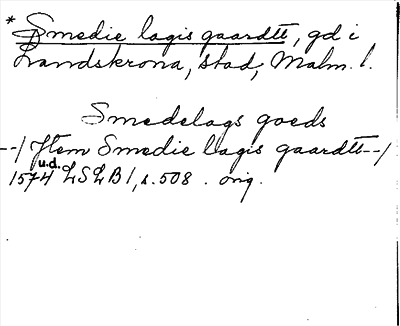 * Smedie lagis gaardtt, gd i
Landskrona, stad, Malm. l.
Smedelags goeds
--/ Jtem Smedie lagis gaardtt--/
u.d.
1574 LSLB 1, s. 508. orig.